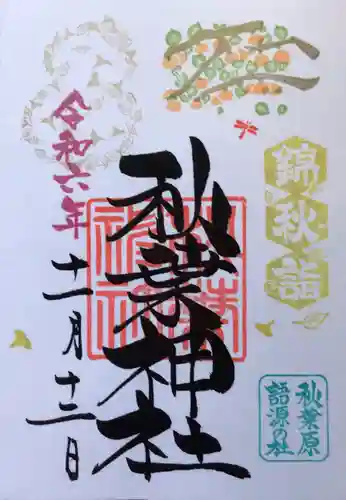 錦秋詣
秋葉神社
令和六年
十一月十三日
秋葉原
語源の社